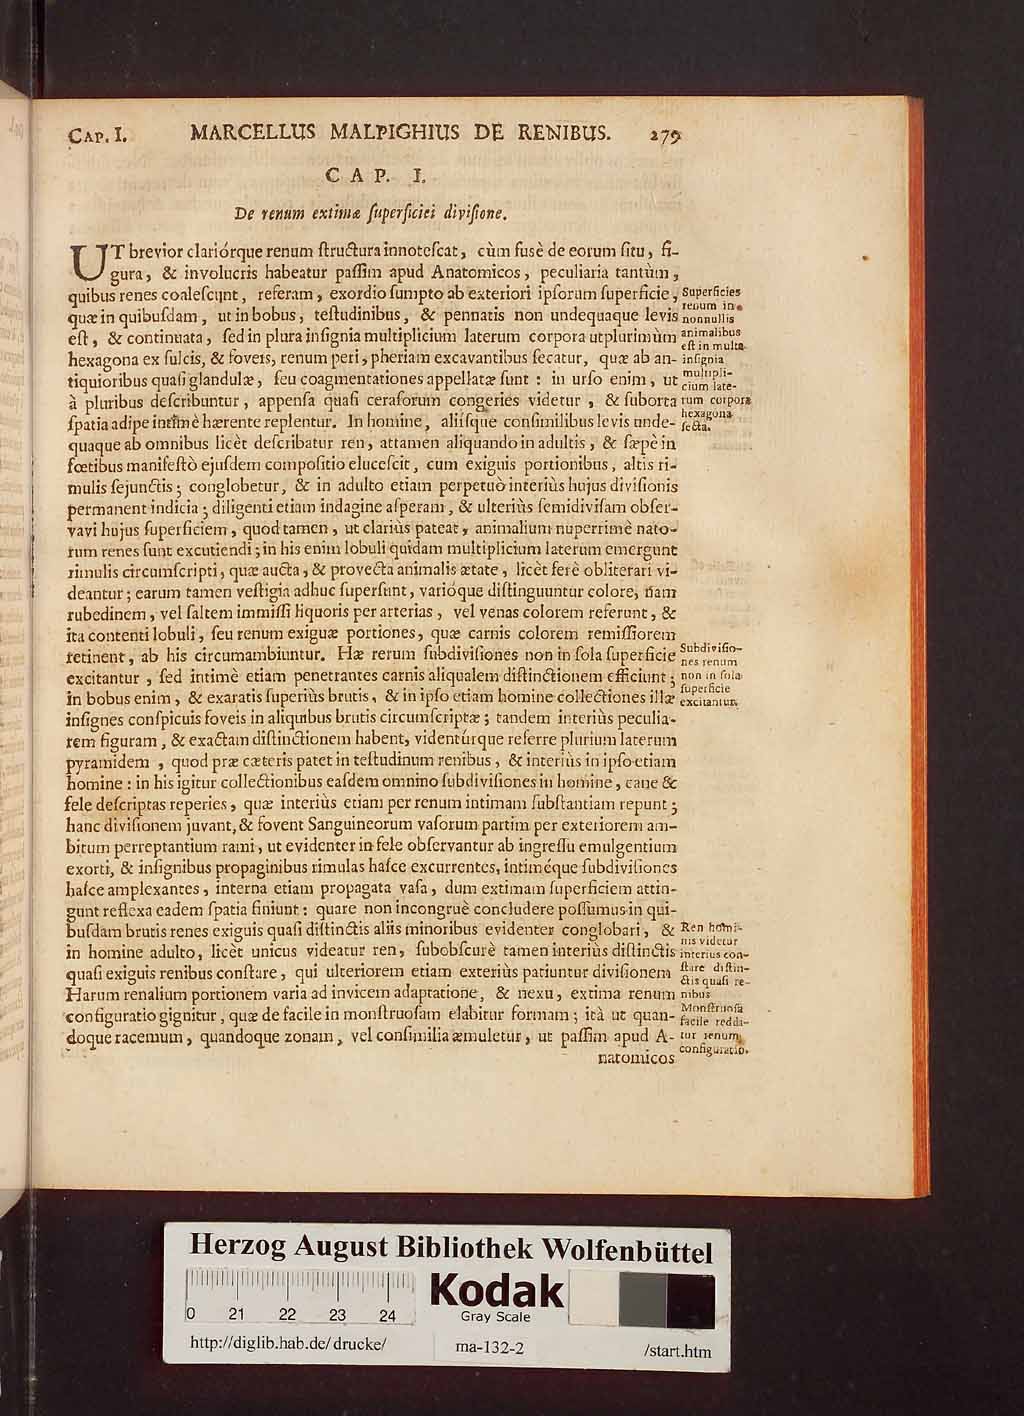 CAP. I. MARCELLUS MALPIGHIUS DE RENIBUS. 279
CAP. I.
De renum extimæ ſuperficiei diviſione.
UT brevior clariórque renum ſtructura innoteſcat, cùm fusè de eorum ſitu, fi-
gura, & involucris habeatur paſſim apud Anatomicos, peculiaria tantùm,
quibus renes coaleſcunt, referam, exordio ſumpto ab exteriori ipſorum ſuperficie,
quæ in quibuſdam, ut in bobus, teſtudinibus, & pennatis non undequaque levis
eſt, & continuata, ſed in plura inſignia multiplicium laterum corpora utplurimùm
hexagona ex ſulcis, & foveis, renum peri, pheriam excavantibus ſecatur, quæ ab an-
tiquioribus quaſi glandulæ, ſeu coagmentationes appellatæ ſunt : in urſo enim, ut
à pluribus deſcribuntur, appenſa quaſi ceraſorum congeries videtur, & ſuborta
ſpatia adipe intimè hærente replentur. In homine, aliiſque conſimilibus levis unde-
quaque ab omnibus licèt deſcribatur ren, attamen aliquando in adultis, & ſæpè in
fœtibus manifeſtò ejuſdem compoſitio eluceſcit, cum exiguis portionibus, altis ri-
mulis ſejunctis; conglobetur, & in adulto etiam perpetuò interiùs hujus diviſionis
permanent indicia; diligenti etiam indagine aſperam, & ulteriùs ſemidiviſam obſer-
vavi hujus ſuperficiem, quod tamen, ut clariùs pateat, animalium nuperrimè nato-
rum renes ſunt excutiendi; in his enim lobuli quidam multiplicium laterum emergunt
rimulis circumſcripti, quæ aucta, & provecta animalis ætate, licèt ferè obliterari vi-
deantur; earum tamen veſtigia adhuc ſuperſunt, varióque diſtinguuntur colore, nam
rubedinem, vel ſaltem immiſſi liquoris per arterias, vel venas colorem referunt, &
ita contenti lobuli, ſeu renum exiguæ portiones, quæ carnis colorem remiſſiorem
retinent, ab his circumambiuntur. Hæ rerum ſubdiviſiones non in ſola ſuperficie
excitantur, ſed intimè etiam penetrantes carnis aliqualem diſtinctionem efficiunt;
in bobus enim, & exaratis ſuperiùs brutis, & in ipſo etiam homine collectiones illæ
inſignes conſpicuis foveis in aliquibus brutis circumſcriptæ; tandem interiùs peculia-
rem figuram, & exactam diſtinctionem habent, videntúrque referre plurium laterum
pyramidem, quod præ cæteris patet in teſtudinum renibus, & interiùs in ipſo etiam
homine : in his igitur collectionibus eaſdem omnino ſubdiviſiones in homine, cane &
fele deſcriptas reperies, quæ interiùs etiam per renum intimam ſubſtantiam repunt;
hanc diviſionem juvant, & fovent Sanguineorum vaſorum partim per exteriorem am-
bitum perreptantium rami, ut evidenter in fele obſervantur ab ingreſſu emulgentium
exorti, & inſignibus propaginibus rimulas haſce excurrentes, intiméque ſubdiviſiones
haſce amplexantes, interna etiam propagata vaſa, dum extimam ſuperficiem attin-
gunt reflexa eadem ſpatia finiunt: quare non incongruè concludere poſſumus in qui-
buſdam brutis renes exiguis quaſi diſtinctis aliis minoribus evidenter conglobari, &
in homine adulto, licèt unicus videatur ren, ſubobſcurè tamen interiùs diſtinctis
quaſi exiguis renibus conſtare, qui ulteriorem etiam exteriùs patiuntur diviſionem
Harum renalium portionem varia ad invicem adaptatione, & nexu, extima renum
configuratio gignitur, quæ de facile in monſtruoſam elabitur formam; ità ut quan-
doque racemum, quandoque zonam, vel conſimilia æmuletur, ut paſſim apud A-
natomicos
Superficies
renum in
nonnullis
animalibus
eſt in multa
inſignia
multipli-
cium late-
rum corpora
hexagona
ſecta.
Subdiviſio-
nes renum
non in ſola
ſuperficie
excitantur.
Ren homi-
nis videtur
interius con-
ſtare diſtin-
ctis quaſi re-
nibus
Monſtruoſa
facile reddi-
tur renum
configuratio.
Herzog August Bibliothek Wolfenbüttel
0 21 22 23 24
Kodak
Gray Scale
http://diglib.hab.de/drucke/ ma-132-2 /start.htm